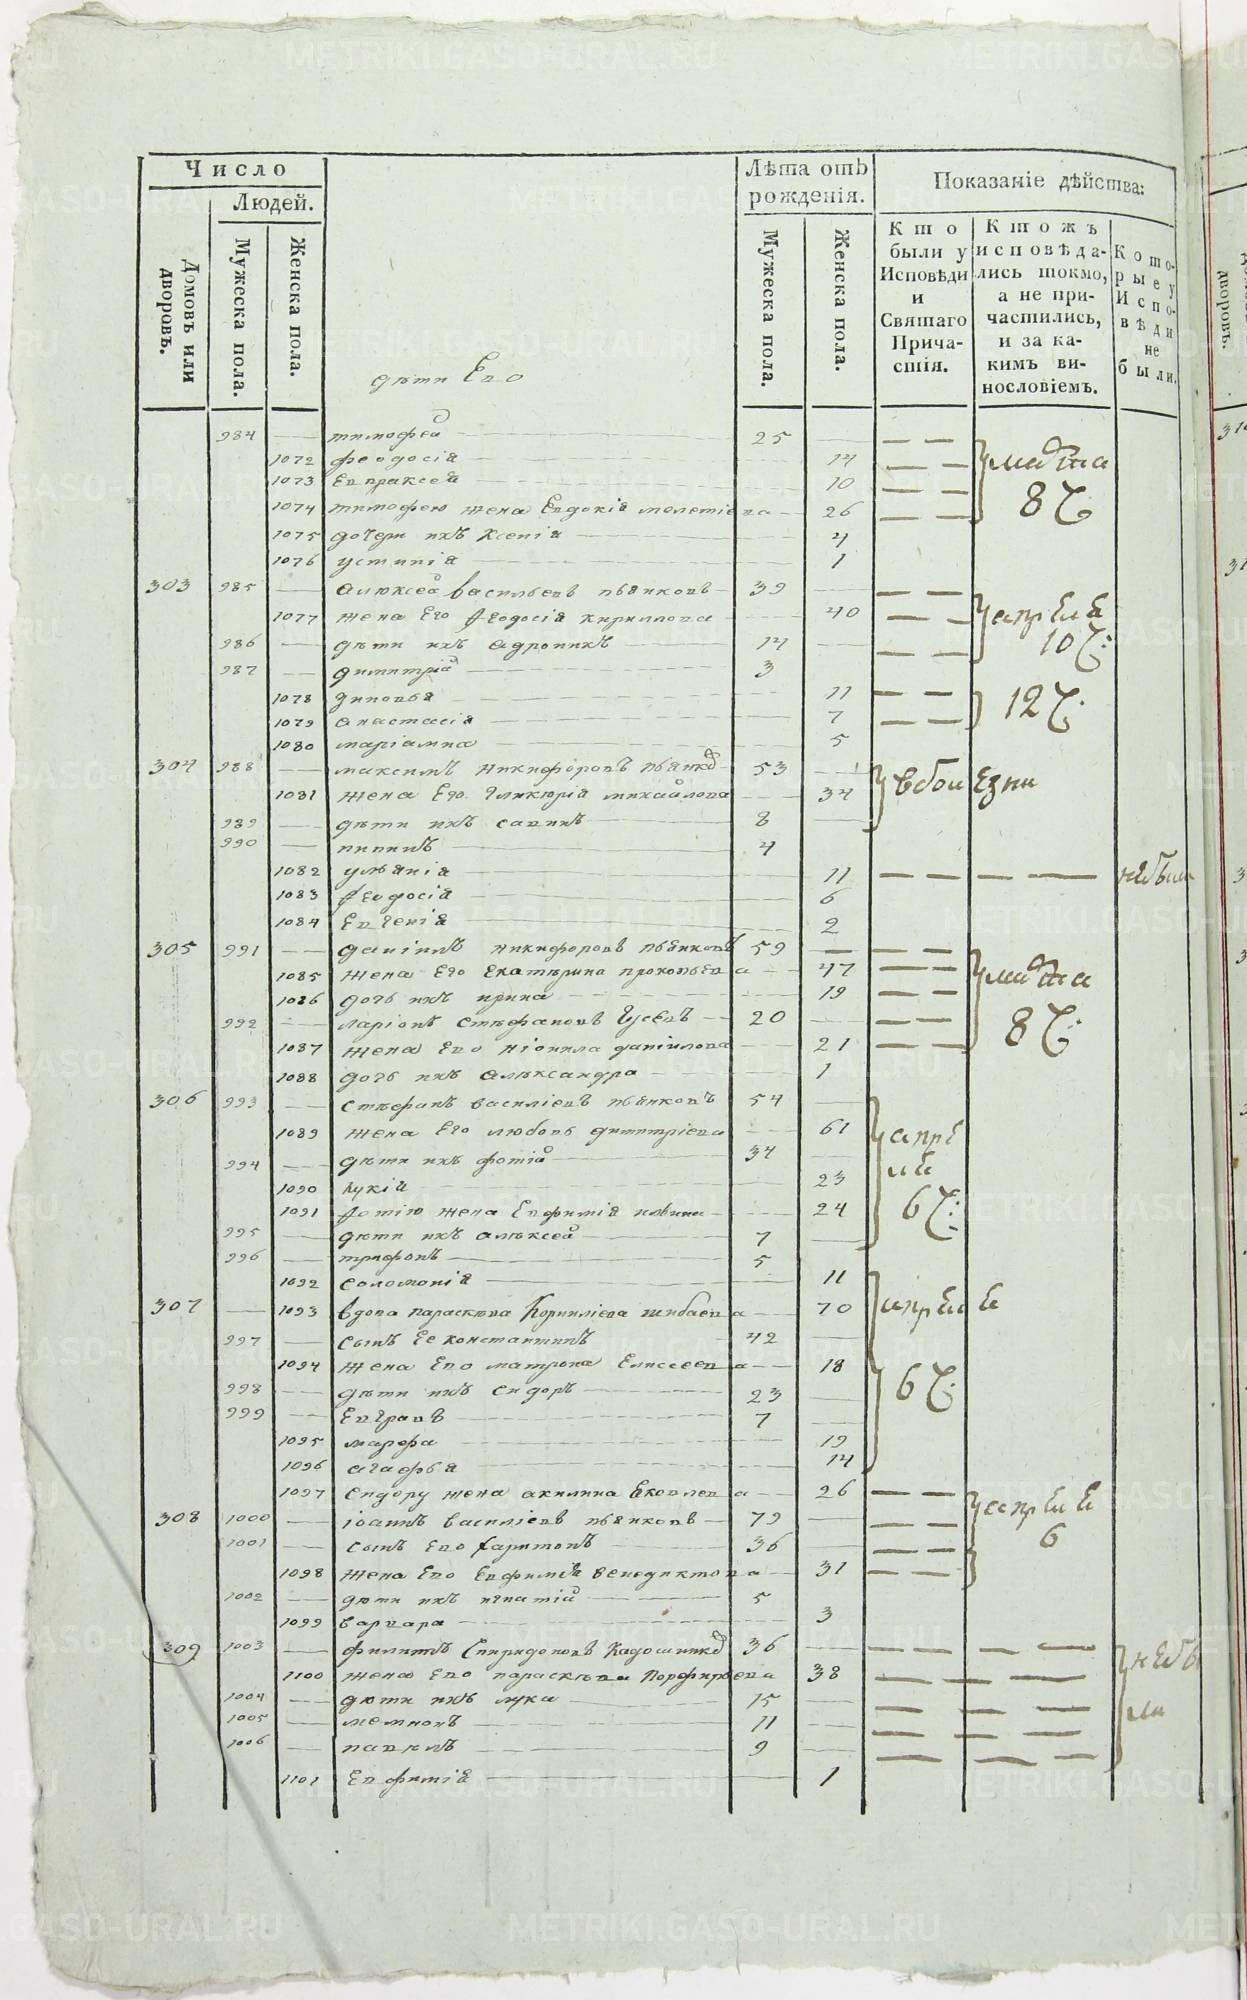 Число
Людей.
Домовъ или дворовъ.
Мужеска пола.
Женска пола.
Лѣта отъ рожденія.
Мужеска пола.
Женска пола.
Показаніе дѣйства:
Кто были у Исповѣди и Святаго Причастія.
Ктожъ исповѣдались токмо, а не причастились, и за какимъ винословіемъ.
Которые у Исповѣди не были.
дѣти Его
984 тимофей 25
1072 феодосія 14
1073 Евпраксея 10
1074 тимофею жена Евдокія мелетіева 26
1075 дочери ихъ Ксенія 4
1076 устинія 1
марта 8 Ч.
303 985 Алѣксей васильевъ пьянковъ 39
1077 жена Его феодосія кириллова 40
986 дѣти ихъ Адроникъ 14
987 димитрій 3
1078 зиновья 11
1079 анастасія 7
1080 маріамна 5
апрѣля 10 Ч:
12 Ч:
304 988 максимъ никифоровъ пьянковъ 53
1081 жена Его Гликерія михайлова 34
989 дѣти ихъ савинъ 8
990 пиминъ 4
1082 уліанія 11
1083 феодосія 6
1084 Евгенія 2
вболѣзни
небыли
305 991 даніилъ никифоровъ пьянковъ 59
1085 жена Его Екатѣрина прокопьева 47
1086 дочь ихъ ирина 19
992 ларіонъ стефановъ Гусевъ 20
1087 жена Его неонила даніилова 21
1088 дочь ихъ алѣксандра 1
марта 8 Ч:
306 993 стѣфанъ василіевъ пьянковъ 54
1089 жена Его любовь димитріева 61
994 дѣти ихъ фотій 34
1090 лукія 23
1091 фотію жена Евфимія ильина 24
995 дѣти ихъ алѣксей 7
996 трифонъ 5
1092 соломонія 11
апрѣля 6 Ч:
307 1093 вдова параскѣва Корниліева шибаева 70
997 сынъ Ее константинъ 42
1094 жена Его матрона Елисеева 18
998 дѣти ихъ сидоръ 23
999 Евграфъ 7
1095 марфа 19
1096 агафья 14
1097 сидору жена акилина яковлева 26
апрѣля 6 Ч:
308 1000 іоаннъ василіевъ пьянковъ 79
1001 сынъ Его харитонъ 36
1098 жена Его Евфимія венедиктова 31
1002 дѣти ихъ игнатій 5
1099 варвара 3
апрѣля 6
309 1003 филиппъ Спиридоновъ Кадошниковъ 36
1100 жена Его параскѣва Порфирьева 38
1004 дѣти ихъ лука 15
1005 мемнонъ 11
1006 павелъ 9
1101 Евфимія 1
небыли
METRIKI.GASO-URAL.RU